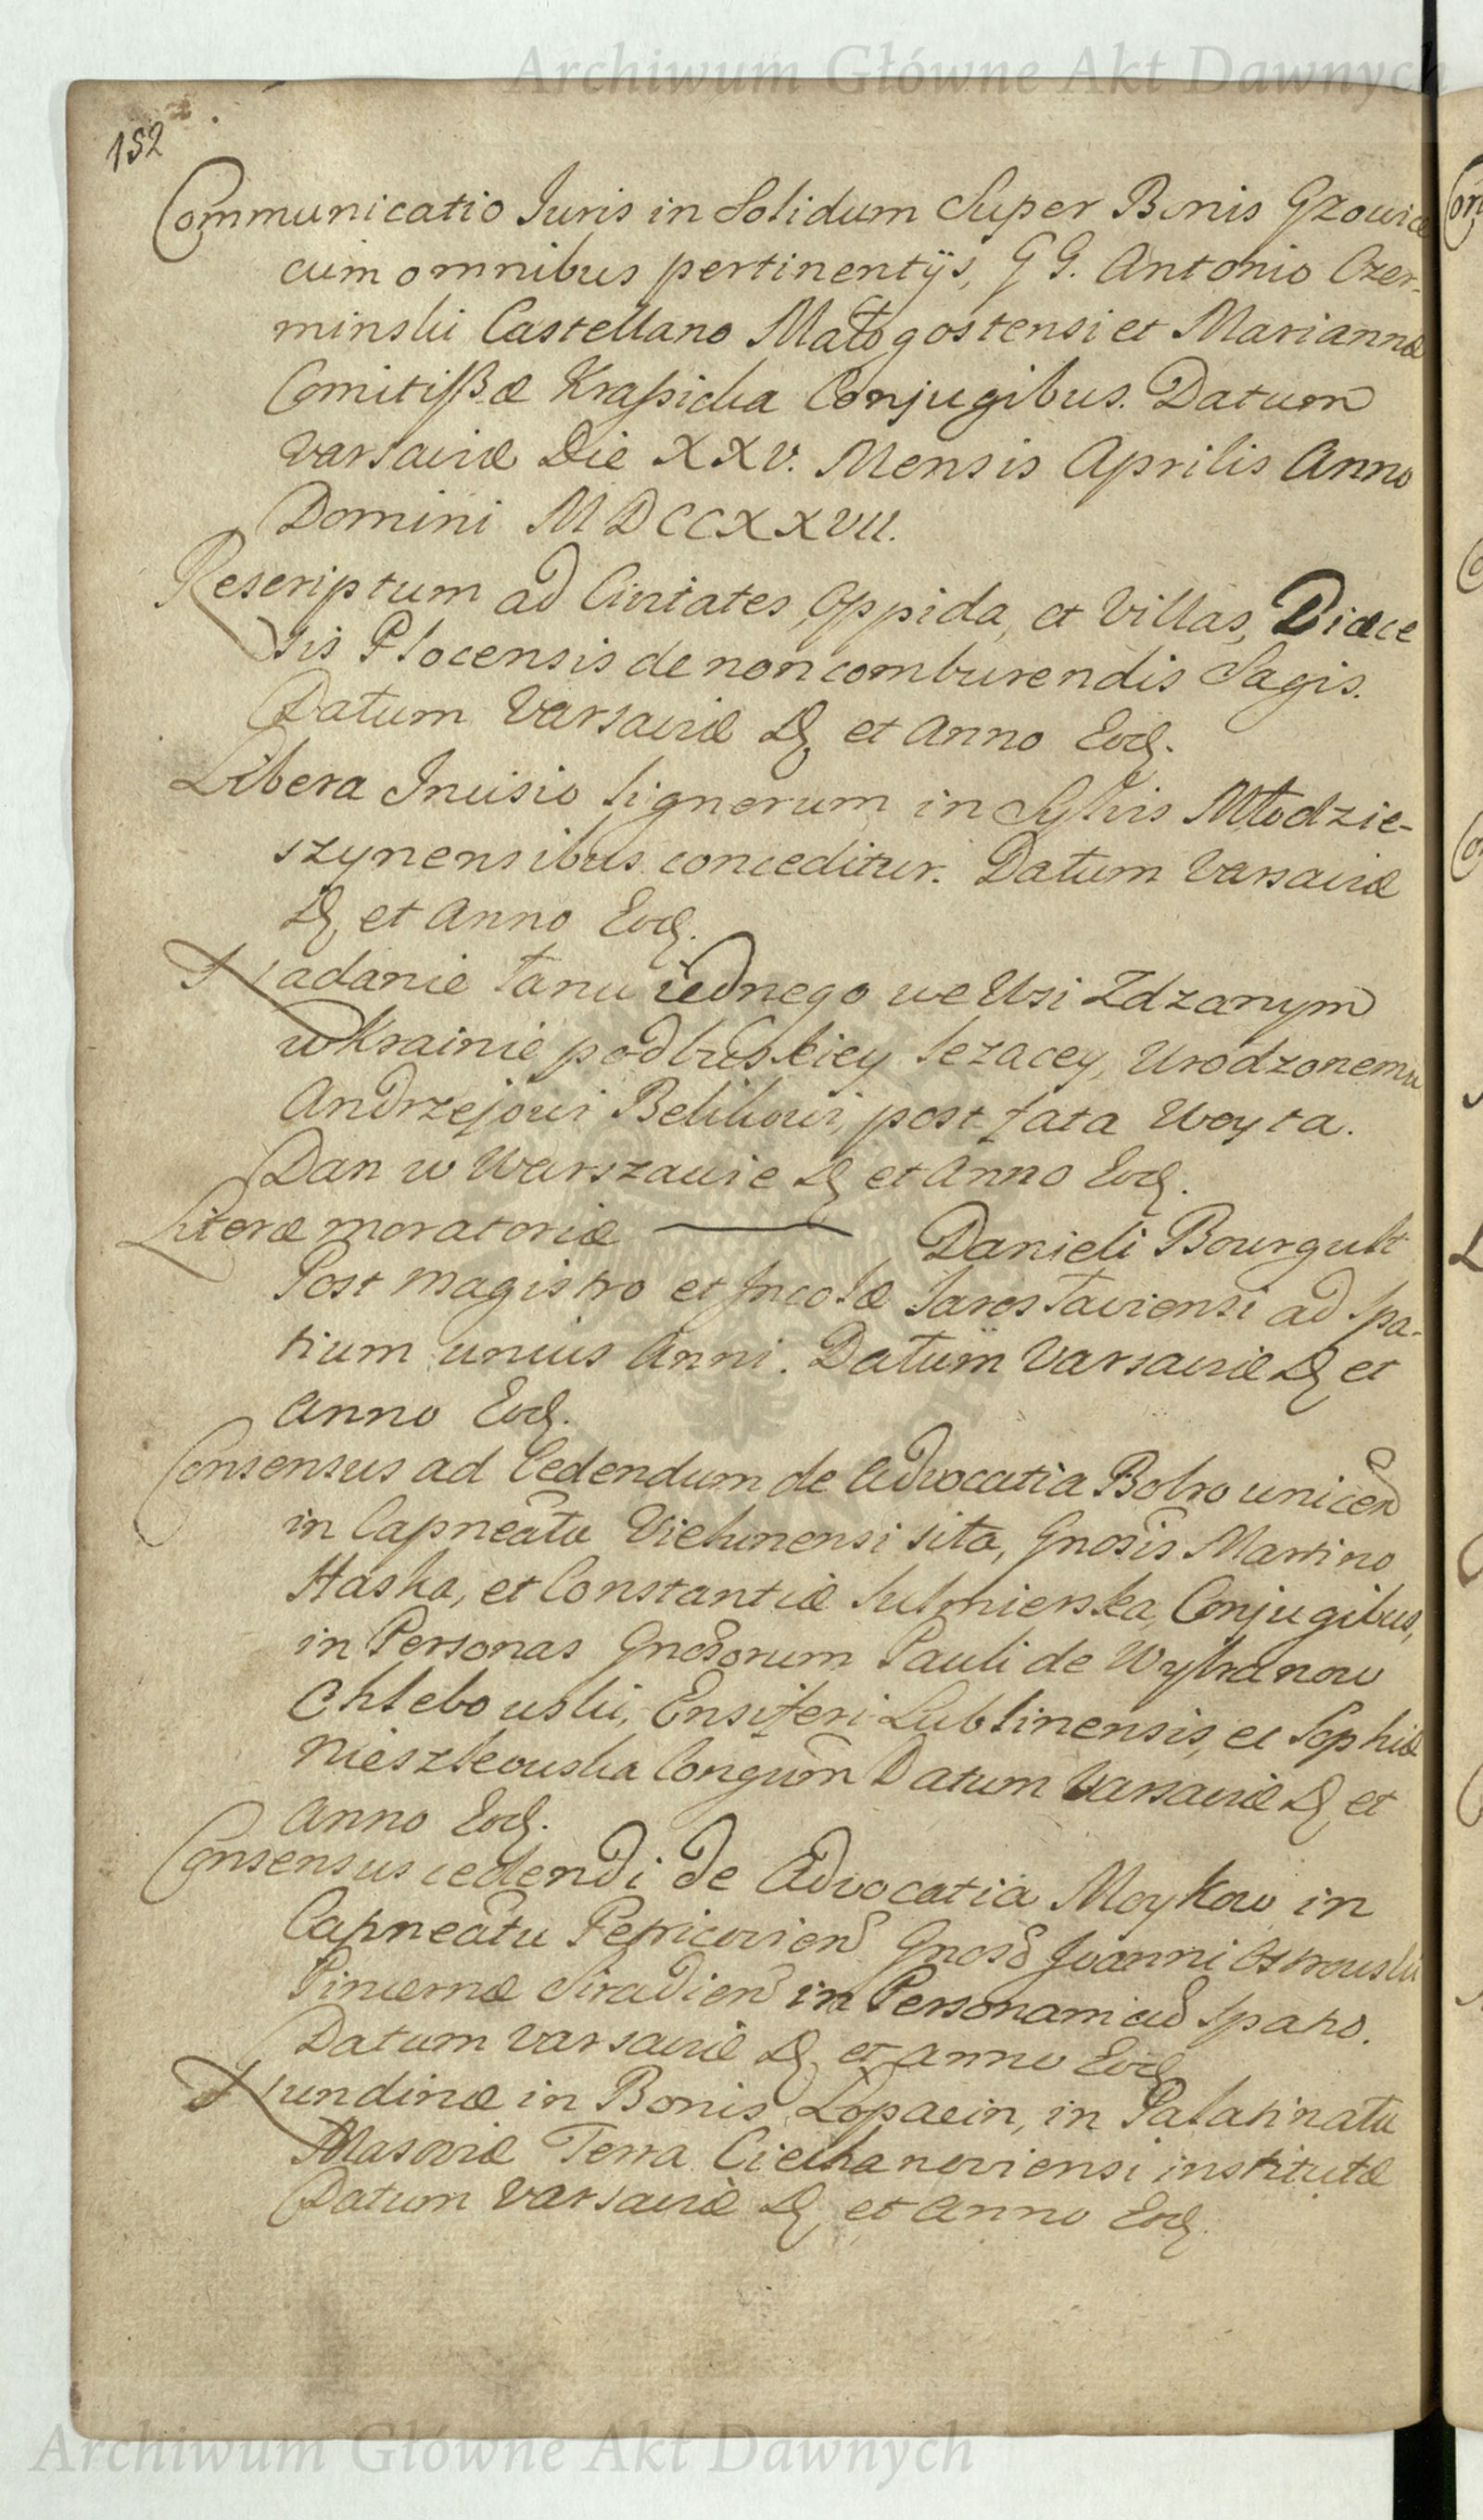 Archiwum Główne Akt Dawnych
152
Communicatio Juris in Solidum Super Bonis Gzowice
cum omnibus pertinentijs, G G. Antonio Czer-
minski Castellano Małogostensi et Mariannæ
Comitissæ Krasicka Conjugibus. Datum
Varsaviæ Die XXV. Mensis Aprilis Anno
Domini MDCCXXVII.
Rescriptum ad Civitates, Oppida, et Villas, Diæce
sis Plocensis de non comburendis Sagis.
Datum Varsaviæ D, et Anno Eod.
Libera Incisio lignorum in Sylvis Młodzie-
szynensibus conceditur. Datum Varsaviæ
D, et Anno Eod.
Nadanie łanu iednego we Wsi Zdzanym
w Krainie podbuskiey lezacey, Urodzonemu
Andrzejowi Belikowi, post fata Woyta.
Dan w Warszawie D, et Anno Eod.
Literæ moratoriæ — Danieli Bourgult
Post magistro et Incolæ Jarosłaviensi ad Spa-
tium unius Anni. Datum Varsaviæ D, et
Anno Eod.
Consensus ad Cedendum de Advocatia Bobrownicen
in Capneatu Vielunensi sita, Gnosis Martino
Haska, et Constantiæ Sulmierska, Conjugibus,
in Personas Gnosorum Pauli de Wylranow
Chlebowski, Ensiferi Lublinensis, et Sophiæ
Nieszkowska Congum Datum Varsaviæ D, et
Anno Eod.
Consensus cedendi de Advocatia Moykow in
Capneatu Petricovien Gnoso Joanni Ostrowski
Pincernæ Siradien in Personam ad Spatio.
Datum Varsaviæ D, et Anno Eod
Nundinæ in Bonis Łopacin, in Palatinatu
Masoviæ Terra Ciechanoviensi institutæ
Datum Varsaviæ D, et Anno Eod.
Archiwum Główne Akt Dawnych